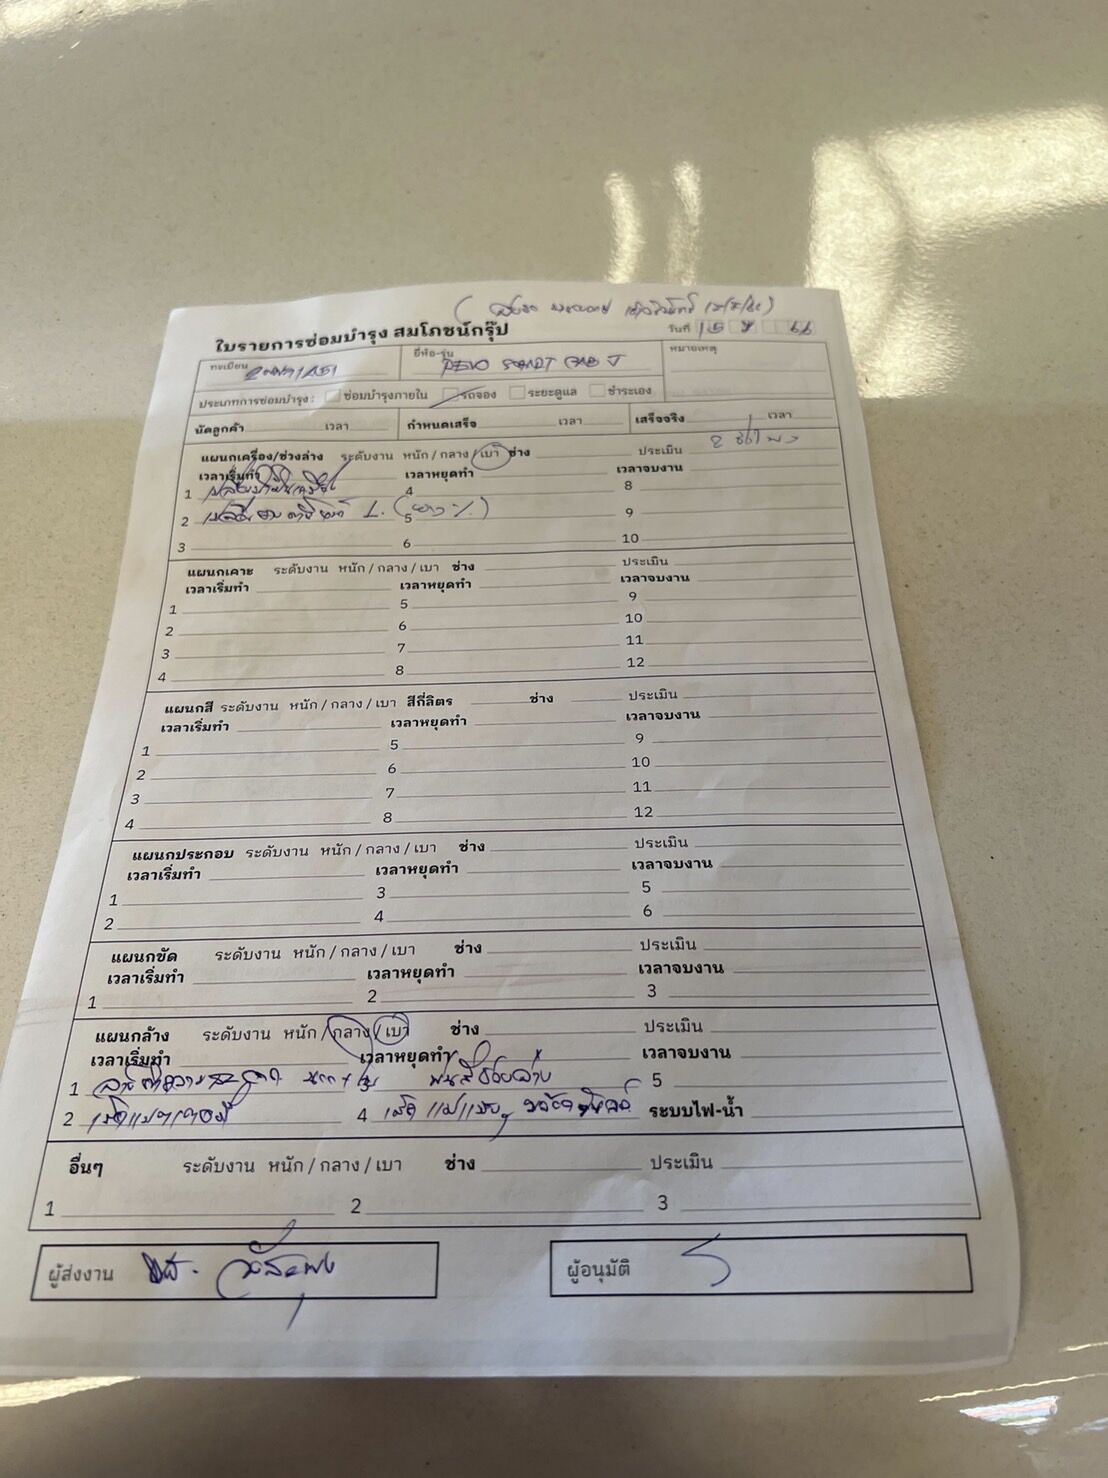 ใบรายการซ่อมบำรุง สมโภชน์กรุ๊ป วันที่ 66
ทะเบียน ยี่ห้อ-รุ่น REVO SMART CAB J หมายเหตุ
ประเภทการซ่อมบำรุง : ซ่อมบำรุงภายใน รถจอง ระยะดูแล ชำระเอง
นัดลูกค้า เวลา กำหนดเสร็จ เวลา เสร็จจริง เวลา
แผนกเครื่อง/ช่วงล่าง ระดับงาน หนัก / กลาง / เบา ช่าง ประเมิน 2 ชั่วโมง
เวลาเริ่มทำ เวลาหยุดทำ เวลาจบงาน
1 4 8
2 5 9
3 6 10
แผนกเคาะ ระดับงาน หนัก / กลาง / เบา ช่าง ประเมิน
เวลาเริ่มทำ เวลาหยุดทำ เวลาจบงาน
1 5 9
2 6 10
3 7 11
4 8 12
แผนกสี ระดับงาน หนัก / กลาง / เบา สีกี่ลิตร ช่าง ประเมิน
เวลาเริ่มทำ เวลาหยุดทำ เวลาจบงาน
1 5 9
2 6 10
3 7 11
4 8 12
แผนกประกอบ ระดับงาน หนัก / กลาง / เบา ช่าง ประเมิน
เวลาเริ่มทำ เวลาหยุดทำ เวลาจบงาน
1 3 5
2 4 6
แผนกขัด ระดับงาน หนัก / กลาง / เบา ช่าง ประเมิน
เวลาเริ่มทำ เวลาหยุดทำ เวลาจบงาน
1 2 3
แผนกล้าง ระดับงาน หนัก / กลาง / เบา ช่าง ประเมิน
เวลาเริ่มทำ เวลาหยุดทำ เวลาจบงาน
1 3 พ่นสีช่วงล่าง 5
2 4 ระบบไฟ-น้ำ
อื่นๆ ระดับงาน หนัก / กลาง / เบา ช่าง ประเมิน
1 2 3
ผู้ส่งงาน ผู้อนุมัติ